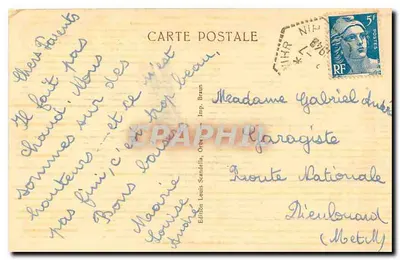 CARTE POSTALE
Chers Parents
Il fait pas
chaud. Nous
sommes sur des
hauteurs... et ce n'est
pas fini, c'est trop beau,
Bons baisers
Marie
Louise
André
Editeur Louis Scandella, Imp. Braun
NIHR NIH
5F
POSTES
RF
Madame Gabriel
Garagiste
Route Nationale
Dieulouard
(MetM)